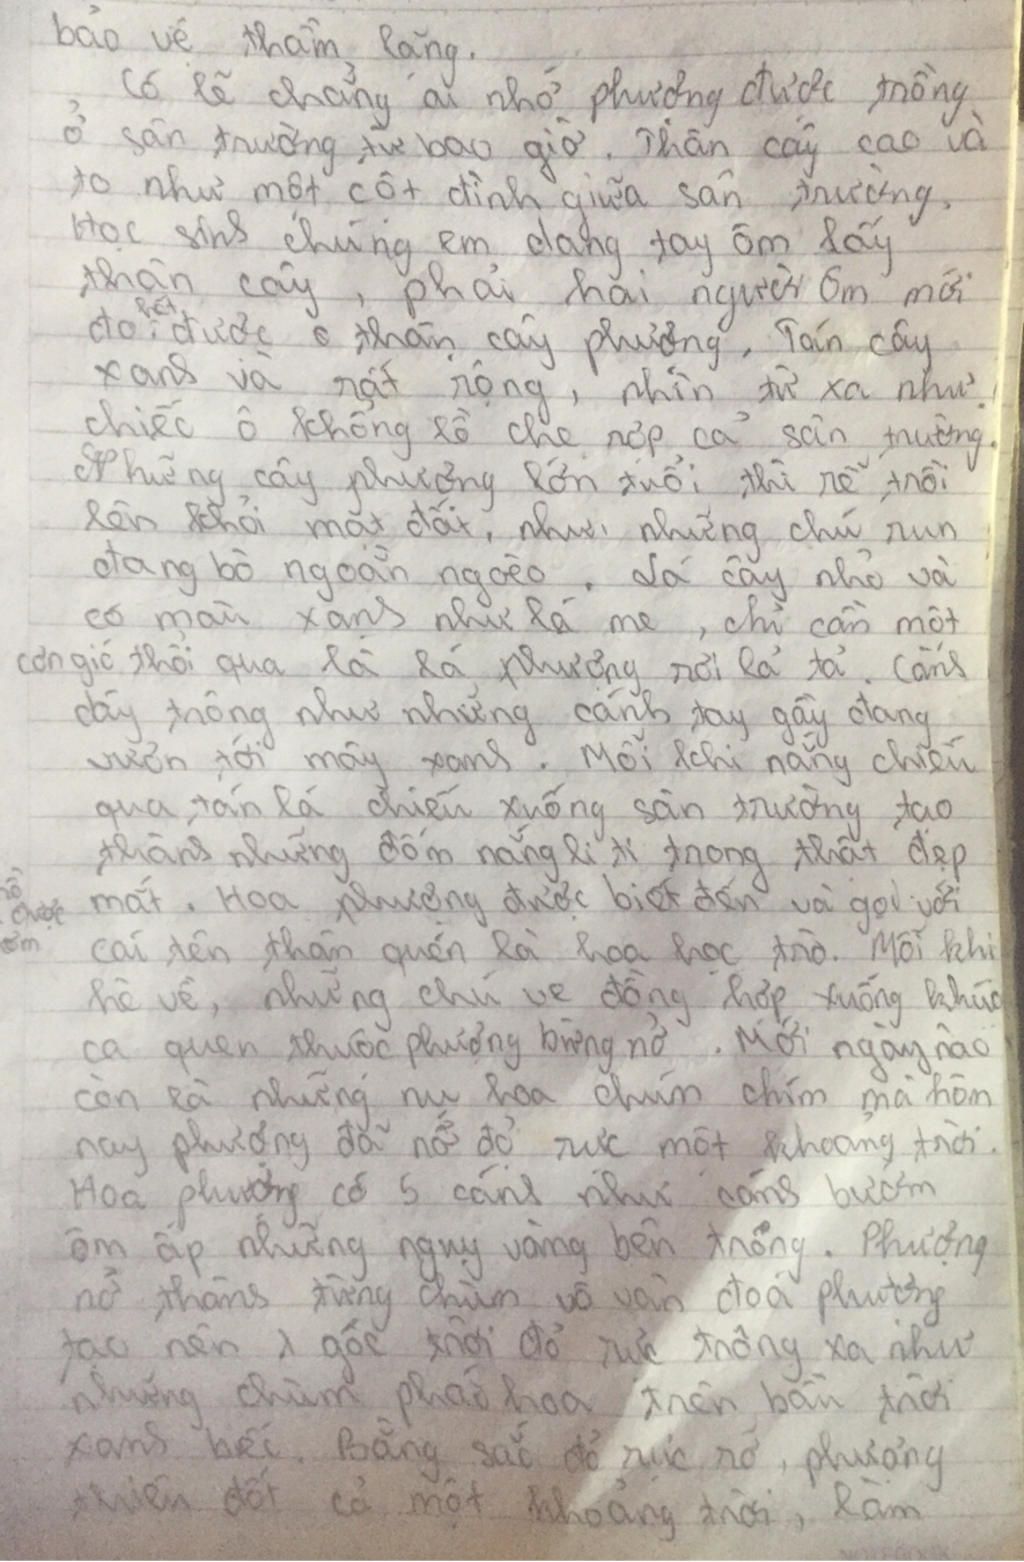 bảo vệ thầm lặng.
Có lẽ chẳng ai nhớ phượng được trồng
ở sân trường từ bao giờ. Thân cây cao và
to như một cột đình giữa sân trường.
Học sinh chúng em dang tay ôm lấy
thân cây, phải hai người ôm mới
hết được thân cây phượng. Tán cây
xanh và rất rộng, nhìn từ xa như
chiếc ô khổng lồ che rợp cả sân trường.
Những cây phượng lớn tuổi thì rễ trồi
lên khỏi mặt đất, như những chú run
đang bò ngoằn ngoèo. Lá cây nhỏ và
có màu xanh như lá me, chỉ cần một
cơn gió thổi qua là lá phượng rơi lả tả. Cành
cây trông như những cánh tay gầy đang
vươn tới mây xanh. Mỗi khi nắng chiếu
qua tán lá chiếu xuống sân trường tạo
thành những đốm nắng li ti trong thật đẹp
mắt. Hoa phượng được biết đến và gọi với
cái tên thân quen là hoa học trò. Mỗi khi
hè về, những chú ve đồng hợp xướng khúc
ca quen thuộc phượng bừng nở. Mới ngày nào
còn là những nụ hoa chúm chím mà hôm
nay phượng đã nở đỏ rực một khoảng trời.
Hoa phượng có 5 cánh như cánh bướm
ôm ấp những nguỵ vàng bên trong. Phượng
nở thành từng chùm vô vàn đoá phượng
tạo nên 1 góc trời đỏ rực trông xa như
những chùm pháo hoa trên bầu trời
xanh biếc. Bằng sắc đỏ rực rỡ, phượng
thiêu đốt cả một khoảng trời, làm